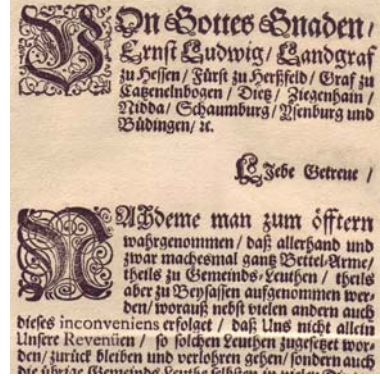 VOn Gottes Gnaden /
Ernst Ludwig / Landgraf
zu Hessen / Fürst zu Herßfeld / Graf zu
Catzenelnbogen / Dietz / Ziegenhain /
Nidda / Schaumburg / Ysenburg und
Büdingen / ꝛc.
LJebe Getreue /
NAchdeme man zum öfftern
wahrgenommen / daß allerhand und
zwar machesmal gantz Bettel-Arme /
theils zu Gemeinds-Leuthen / theils
aber zu Beysassen aufgenommen wer-
den / worauß nebst vielen andern auch
dieses inconveniens erfolget / daß Uns nicht allein
Unsere Revenüen / so solchen Leuthen zugesetzet wor-
den / zurück bleiben und verlohren gehen / sondern auch
die übrige Gemeinds-Leuthe selbsten in vielen